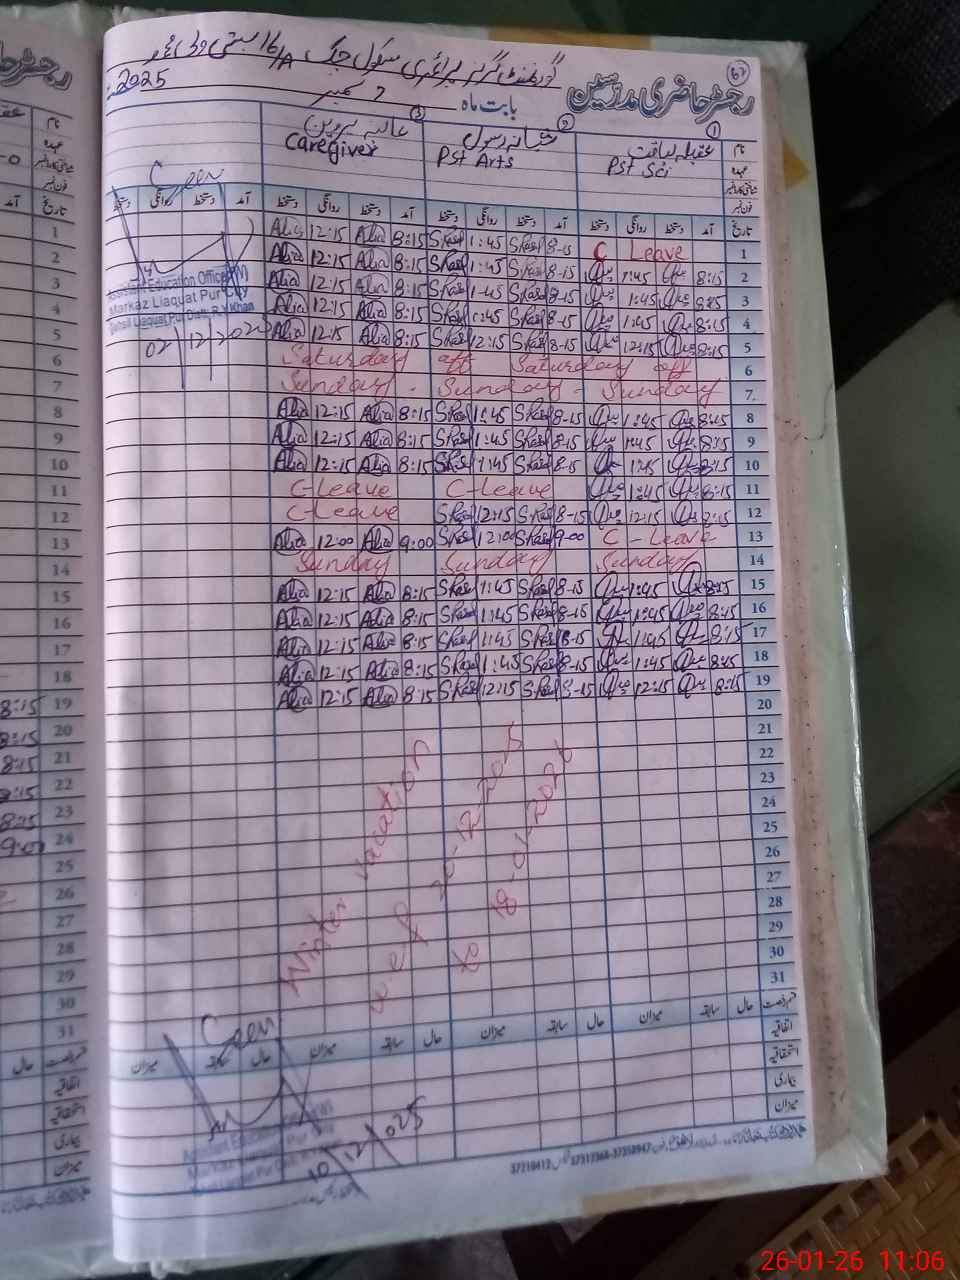 67
گورنمنٹ گرلز پرائمری سکول چک 16/A بستی
رجسٹر حاضری مدرسین
بابت ماہ دسمبر 2025
نام 1 عقیلہ لیاقت 2 رسول 3 عالیہ پروین
عہدہ Pst Sci Pst Arts Caregiver
شناختی کارڈ نمبر
فون نمبر
تاریخ آمد دستخط روانگی دستخط آمد دستخط روانگی دستخط آمد دستخط روانگی دستخط آمد دستخط روانگی دستخط
Alia 12:15 Alia 8:15 1:45 8-15 C Leave 1
Alia 12:15 Alia 8:15 1:45 8-15 1:45 8:15 2
Alia 12:15 Alia 8:15 1-45 8-15 1:45 8:15 3
Alia 12:15 Alia 8:15 1:45 8-15 1:45 8:15 4
Alia 12:15 Alia 8:15 12:15 8-15 12:15 8:15 5
Saturday off Saturday off 6
Sunday - Sunday - Sunday 7
Alia 12:15 Alia 8:15 1:45 8-15 1:45 8:15 8
Alia 12:15 Alia 8:15 1:45 8-15 1:45 8:15 9
Alia 12:15 Alia 8:15 1:45 8-15 1:45 8:15 10
C-Leave C-Leave 1:45 8:15 11
C-Leave 12:15 8-15 12:15 8:15 12
Alia 12:00 Alia 9:00 12:00 9-00 C-Leave 13
Sunday Sunday Sunday 14
Alia 12:15 Alia 8:15 1:45 8-15 1:45 8:15 15
Alia 12:15 Alia 8:15 1:45 8-15 1:45 8:15 16
Alia 12:15 Alia 8:15 1:45 8-15 1:45 8:15 17
Alia 12:15 Alia 8:15 1:45 8-15 1:45 8:15 18
Alia 12:15 Alia 8:15 12:15 8-15 12:15 8:15 19
20
21
22
23
24
25
26
27
28
29
30
31
Winter Vacation
w.e.f 20-12-2025
to 18-01-2026
Seen
Assistant Education Officer (W)
Markaz Liaquat Pur City
Tehsil Liaquat Pur Distt. R.Y.Khan
02/12/2025
قسم رخصت حال سابقہ میزان حال سابقہ میزان حال سابقہ میزان حال سابقہ میزان
اتفاقیہ
استحقاقیہ
بیماری
میزان
Seen
Assistant Education
10/12/025
رجسٹر حاضر
نام
عہدہ
شناختی کارڈ نمبر
فون نمبر
تاریخ آمد
1
2
3
4
5
6
7
8
9
10
11
12
13
14
15
16
17
18
8:15 19
8:15 20
8:15 21
8:15 22
23
9:00 24
25
26
27
28
29
30
31
قسم رخصت حال
اتفاقیہ
استحقاقیہ
بیماری
میزان
26-01-26 11:06